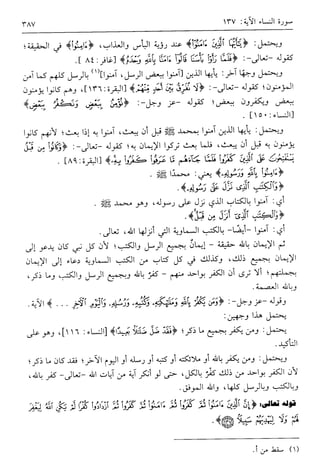 سورة النساء الآية: ١٣٧ ٣٨٧
ويحتمل: ﴿يَٰٓأَيُّهَا ٱلَّذِينَ ءَامَنُوٓاْ﴾ عند رؤية البأس والعذاب، ﴿ءَامِنُواْ﴾ في الحقيقة؛
كقوله -تعالى-: ﴿فَلَمَّا رَأَوۡاْ بَأۡسَنَا قَالُوٓاْ ءَامَنَّا بِٱللَّهِ وَحۡدَهُۥ﴾ [غافر: ٨٤].
ويحتمل وجهًا آخر: يأيها الذين [آمنوا ببعض الرسل، آمنوا](١) بالرسل كلهم كما آمن
المؤمنون؛ كقوله -تعالى-: ﴿لَا نُفَرِّقُ بَيۡنَ أَحَدٖ مِّنۡهُمۡ﴾ [البقرة: ١٣٦]، وهم كانوا يؤمنون
ببعض ويكفرون ببعض؛ كقوله -عز وجل-: ﴿نُؤۡمِنُ بِبَعۡضٖ وَنَكۡفُرُ بِبَعۡضٖ﴾
[النساء: ١٥٠].
ويحتمل: يأيها الذين آمنوا بمحمد ﷺ قبل أن يبعث، آمنوا به إذا بعث؛ لأنهم كانوا
يؤمنون به قبل أن يبعث، فلما بعث تركوا الإيمان به؛ كقوله -تعالى-: ﴿وَكَانُواْ مِن قَبۡلُ
يَسۡتَفۡتِحُونَ عَلَى ٱلَّذِينَ كَفَرُواْ فَلَمَّا جَآءَهُم مَّا عَرَفُواْ كَفَرُواْ بِهِۦ﴾ [البقرة: ٨٩].
﴿ءَامِنُواْ بِٱللَّهِ وَرَسُولِهِۦ﴾ يعني: محمدًا ﷺ.
﴿وَٱلۡكِتَٰبِ ٱلَّذِي نَزَّلَ عَلَىٰ رَسُولِهِۦ﴾.
أي: آمنوا بالكتاب الذي نزل على رسوله، وهو محمد ﷺ.
﴿وَٱلۡكِتَٰبِ ٱلَّذِيٓ أَنزَلَ مِن قَبۡلُ﴾.
أي: آمنوا -أيضًا- بالكتب السماوية التي أنزلها الله، تعالى.
ثم الإيمان بالله حقيقة - إيمانٌ بجميع الرسل والكتب؛ لأن كل نبي كان يدعو إلى
الإيمان بجميع ذلك، وكذلك في كل كتاب من الكتب السماوية دعاء إلى الإيمان
بجملتهم؛ ألا ترى أن الكفر بواحد منهم - كفرٌ بالله وبجميع الرسل والكتب وما ذكر،
وبالله العصمة.
وقوله -عز وجل-: ﴿وَمَن يَكۡفُرۡ بِٱللَّهِ وَمَلَٰٓئِكَتِهِۦ وَكُتُبِهِۦ وَرُسُلِهِۦ وَٱلۡيَوۡمِ ٱلۡأٓخِرِ ...﴾ الآية.
يحتمل هذا وجهين:
يحتمل: ومن يكفر بجميع ما ذكر؛ ﴿فَقَدۡ ضَلَّ ضَلَٰلَۢا بَعِيدًا﴾ [النساء: ١١٦]، وهو على
التأكيد.
ويحتمل: ومن يكفر بالله أو ملائكته أو كتبه أو رسله أو اليوم الآخر؛ فقد كان ما ذكر؛
لأن الكفر بواحد من ذلك كفرٌ بالكل، حتى لو أنكر آية من آيات الله -تعالى- كفر بالله،
وبالكتب وبالرسل كلها، والله الموفق.
قوله تعالى: ﴿إِنَّ ٱلَّذِينَ ءَامَنُواْ ثُمَّ كَفَرُواْ ثُمَّ ءَامَنُواْ ثُمَّ كَفَرُواْ ثُمَّ ٱزۡدَادُواْ كُفۡرٗا لَّمۡ يَكُنِ ٱللَّهُ لِيَغۡفِرَ
لَهُمۡ وَلَا لِيَهۡدِيَهُمۡ سَبِيلَۢا ١٣٧﴾.
(١) سقط من أ.